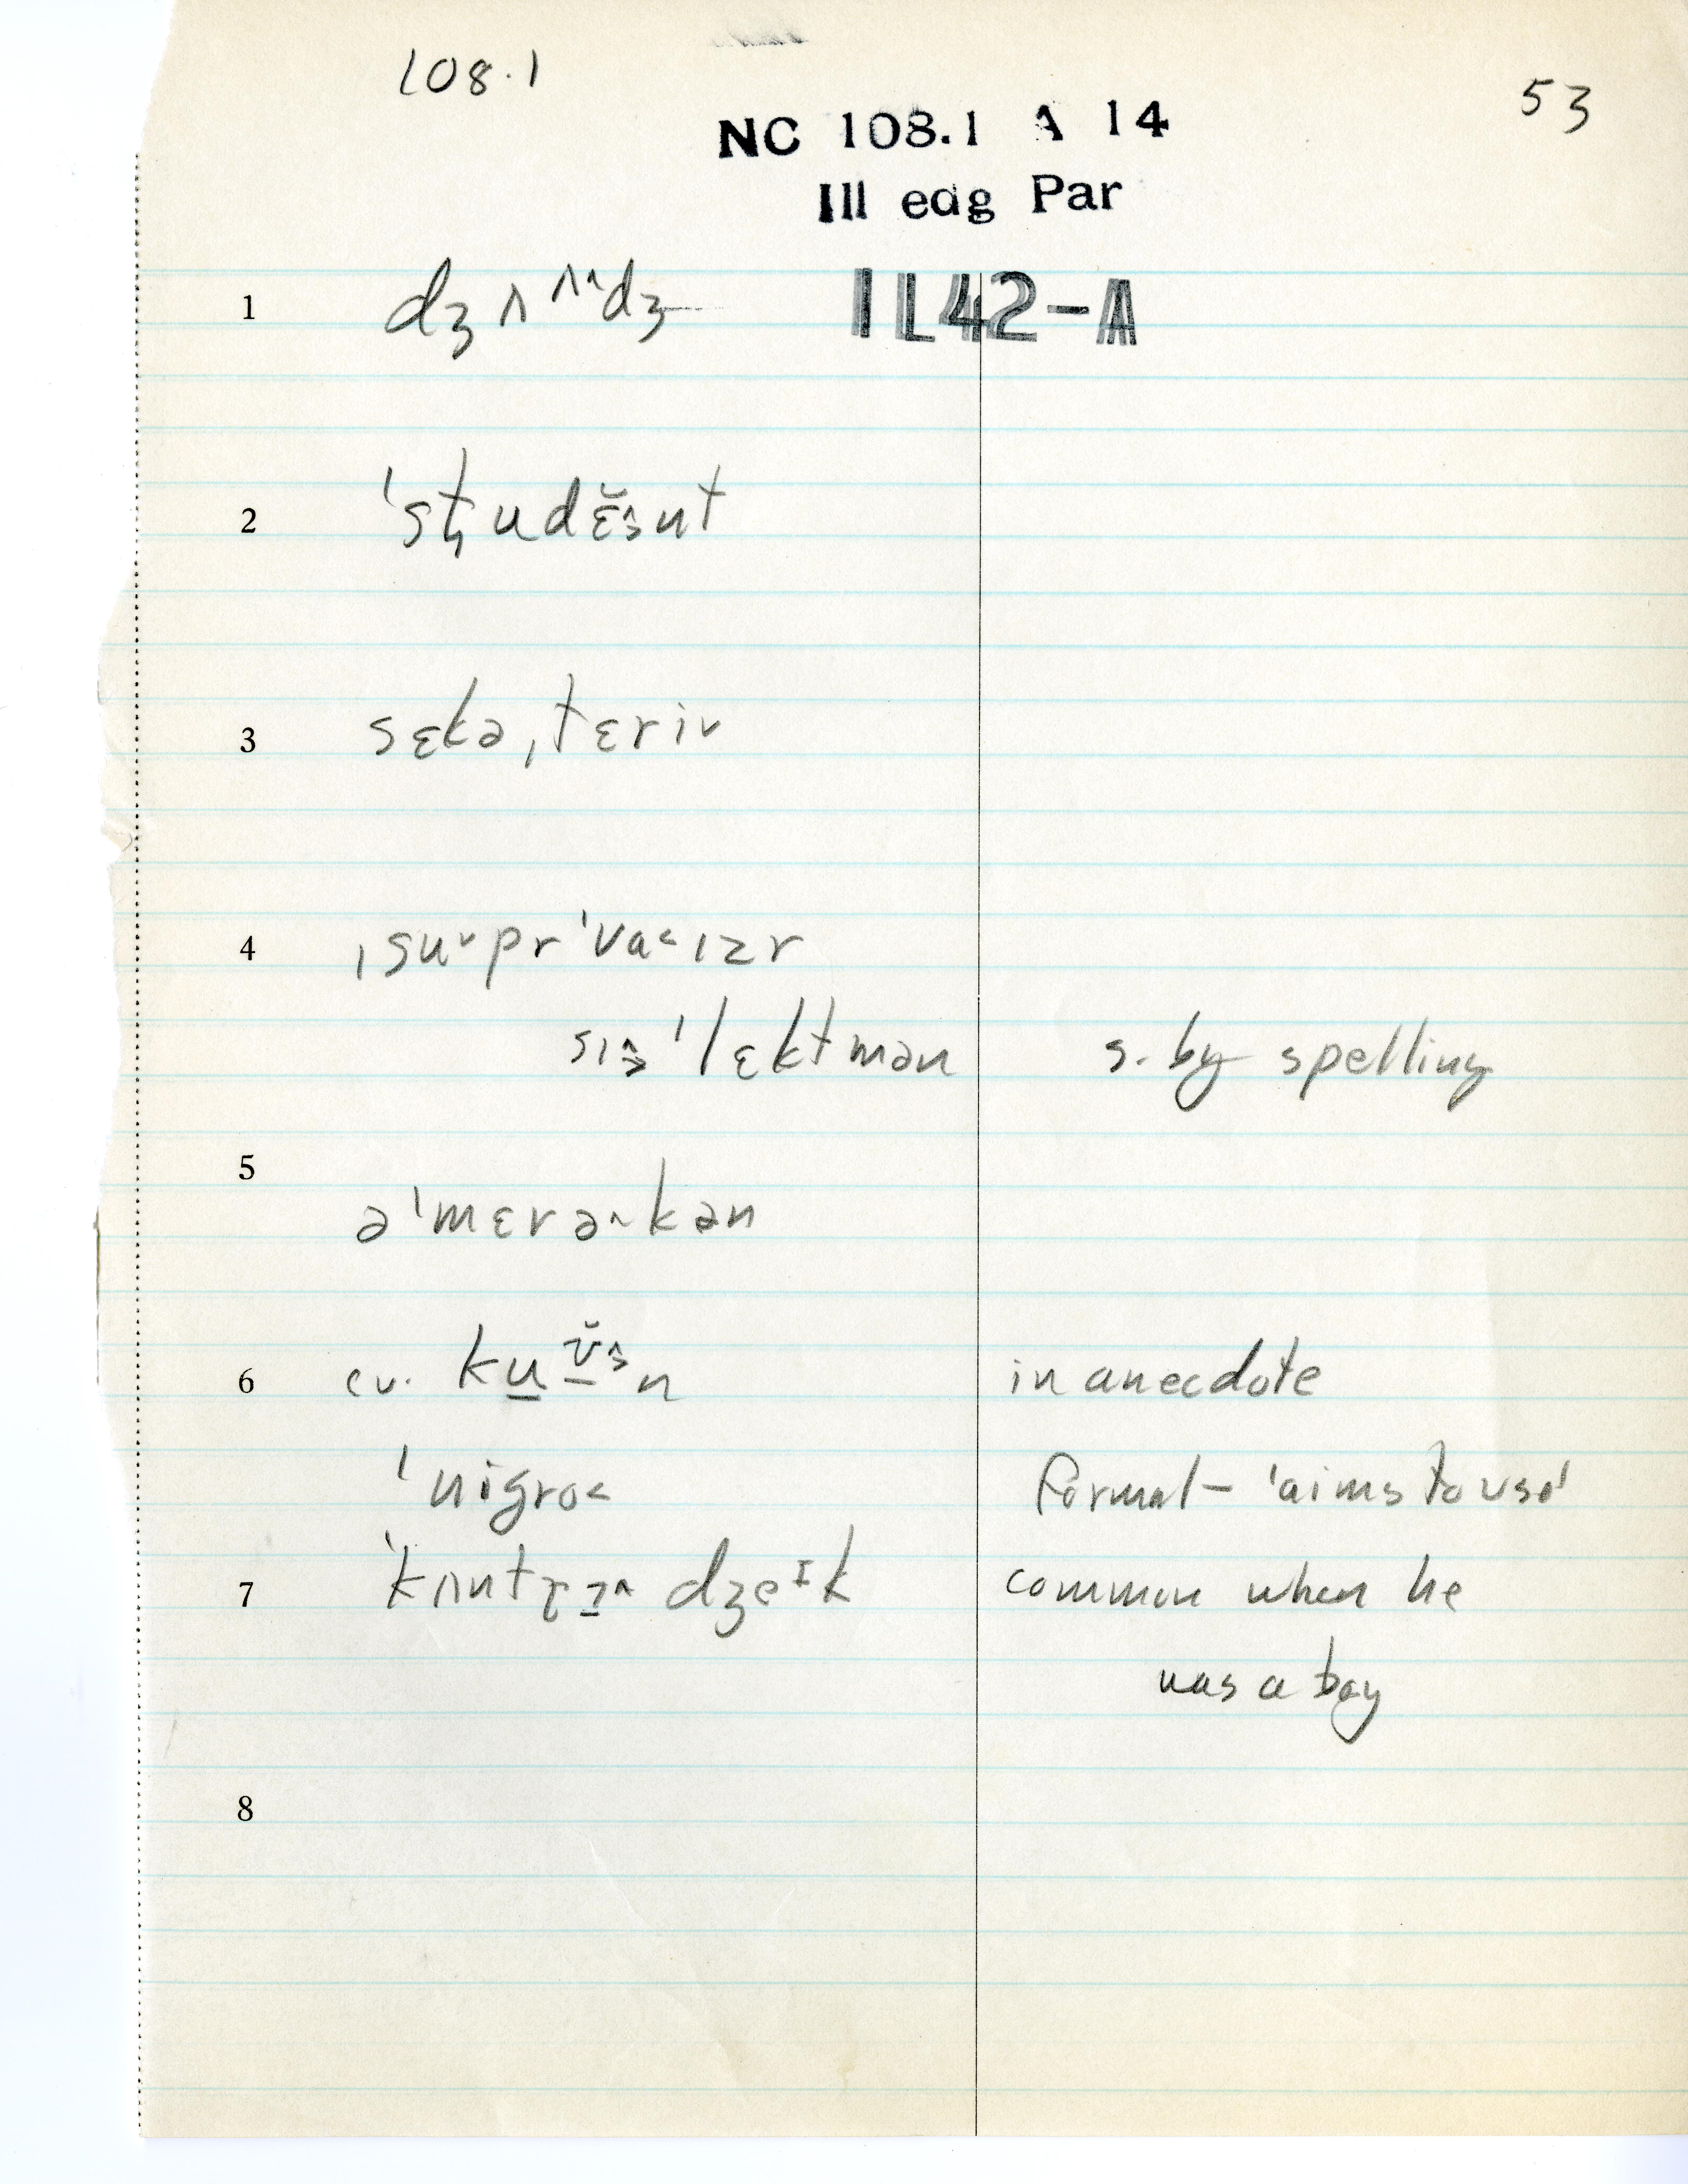 108.1
53
NC 108.1 A 14
Ill edg Par
1 dʒʌ ʌ^dʒ IL42-A
2 ˈst̢udɛ̆ənt
3 sɛkəˌtɛri˅
4 ˌsu˅prˈva˂ɪzr
sɪə̭ˈlɛktmən s. by spelling
5 əˈmɛrə^kən
6 cv. ku̲ n in anecdote
ˈnigro˂ formal - 'aims to use'
7 ˈkʌnt dʒeɪk common when he
was a boy
8